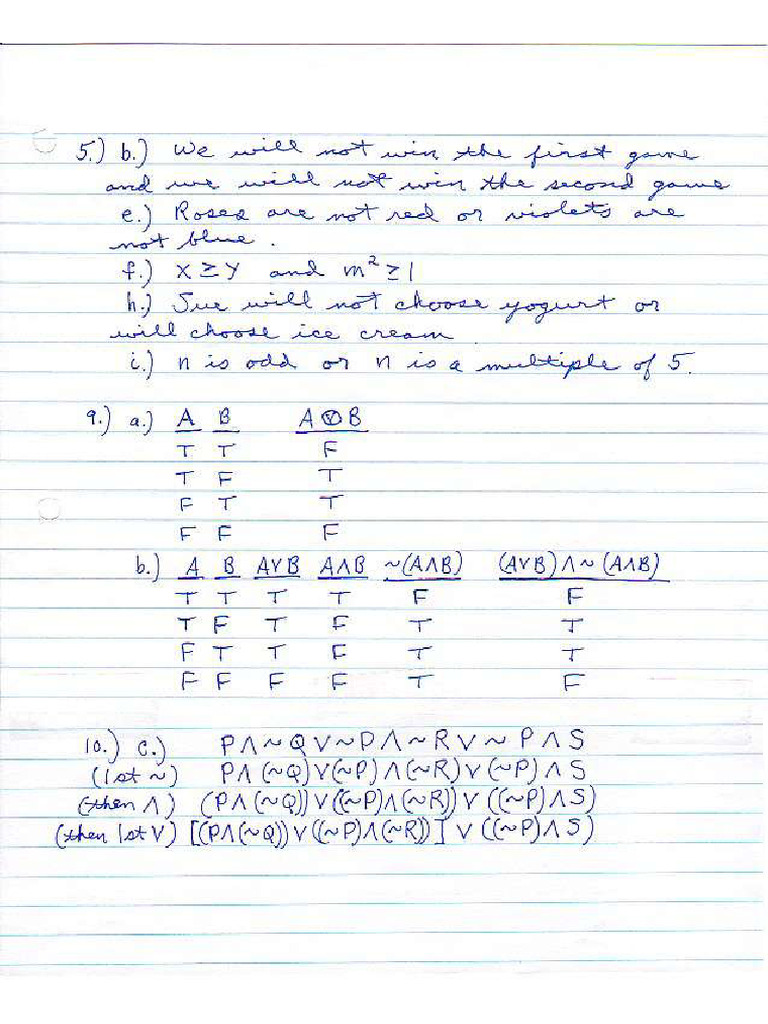 5.) b.) We will not win the first game
and we will not win the second game
e.) Roses are not red or violets are
not blue.
f.) x ≥ y and m² ≥ 1
h.) Sue will not choose yogurt or
will choose ice cream.
i.) n is odd or n is a multiple of 5.
9.) a.) A B A Ⓥ B
T T F
T F T
F T T
F F F
b.) A B A∨B A∧B ~(A∧B) (A∨B)∧~(A∧B)
T T T T F F
T F T F T T
F T T F T T
F F F F T F
10.) c.) P∧~Q∨~P∧~R∨~P∧S
(1st ~) P∧(~Q)∨(~P)∧(~R)∨(~P)∧S
(then ∧) (P∧(~Q))∨((~P)∧(~R))∨((~P)∧S)
(then 1st ∨) [(P∧(~Q))∨((~P)∧(~R))]∨((~P)∧S)